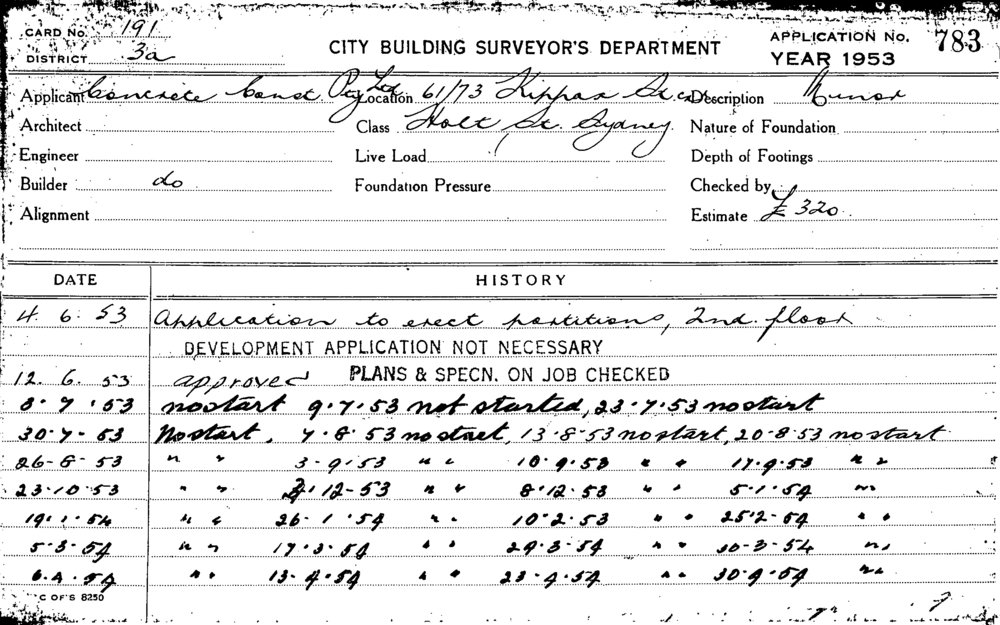 CARD No. 191
DISTRICT 3a
CITY BUILDING SURVEYOR'S DEPARTMENT
APPLICATION No. 783
YEAR 1953
Applicant Concrete Const. Pty Ltd Location 61/73 Kippax St. cnr Description Minor
Architect Class Holt St. Sydney Nature of Foundation
Engineer Live Load Depth of Footings
Builder do Foundation Pressure Checked by
Alignment Estimate £320
DATE HISTORY
4. 6. 53 Application to erect partitions, 2nd. floor
DEVELOPMENT APPLICATION NOT NECESSARY
12. 6. 53 approved PLANS & SPECN. ON JOB CHECKED
3·7·53 no start 9·7·53 not started, 23·7·53 no start
30·7-53 No start, 7·8·53 no start, 13-8-53 no start, 20-8-53 no start
26-8-53 " " 3-9-53 " " 10·9·53 " " 17.9.53 " "
23.10.53 " " 12-53 " " 8.12.53 " " 5·1·54 " "
19.1.54 " " 26-1·54 " " 10·2·53 " " 25·2-54 " "
5-3-54 " " 17·3·54 " " 29-3-54 " " 30-3-54 " "
6.4.54 " " 13-4·54 " " 23-4·54 " " 30·4·54 " "
C OF S 8250